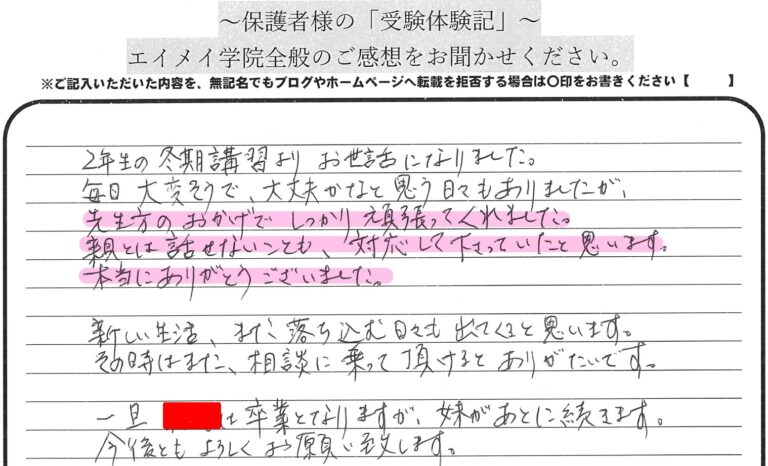 ～保護者様の「受験体験記」～
エイメイ学院全般のご感想をお聞かせください。
※ご記入いただいた内容を、無記名でもブログやホームページへ転載を拒否する場合は〇印をお書きください【　　】
2年生の冬期講習より お世話になりました。
毎日 大変そうで、大丈夫かなと思う日々もありましたが、
先生方のおかげで しっかり頑張ってくれました。
親とは話せないことも、対応して下さっていたと思います。
本当にありがとうございました。
新しい生活、また落ち込む日々も出てくると思います。
その時はまた、相談に乗って頂けるとありがたいです。
一旦 は卒業となりますが、妹があとに続きます。
今後とも よろしくお願い致します。